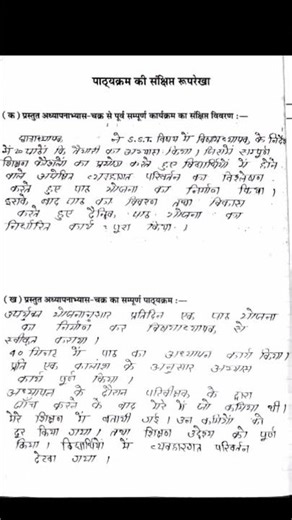 पाठ्यक्रम की संक्षिप्त रूपरेखा
(क) प्रस्तुत अध्यापनाभ्यास-चक्र से पूर्व सम्पूर्ण कार्यक्रम का संक्षिप्त विवरण :—
छात्राध्यापक ने S.S.T. विषय में विषयाध्यापक के निर्देश
में 20 पाठों कि तैयारी का अभ्यास किया जिसमें सम्पूर्ण
शिक्षण कौशलों का प्रयोग करते हुए विद्यार्थियों में होने
वाले अपेक्षित व्यवहारगत परिवर्तन का विश्लेषण
करते हुए पाठ योजना का निर्माण किया।
इसके बाद पाठ का विवरण तथा विकास
करते हुए दैनिक पाठ योजना का
निर्धारित कार्य पूरा किया।
(ख) प्रस्तुत अध्यापनाभ्यास-चक्र का सम्पूर्ण पाठ्यक्रम :—
उपर्युक्त योजनानुसार प्रतिदिन एक पाठ योजना
का निर्माण कर विषयाध्यापक से
स्वीकृत कराया।
40 मिनट में पाठ का अध्यापन कार्य किया।
प्रति एक कालांश के अनुसार अभ्यास
कार्य पूर्ण किया।
अध्यापन के दौरान परिवीक्षक के द्वारा
जाँच करने के बाद मेरे में जो कमियां थी।
मेरे शिक्षण में बतायी गई। उन कमियों को
दूर किया गया। तथा शिक्षण उद्देश्य को पूर्ण
किया। विद्यार्थियों में व्यवहारगत परिवर्तन
देखा गया।